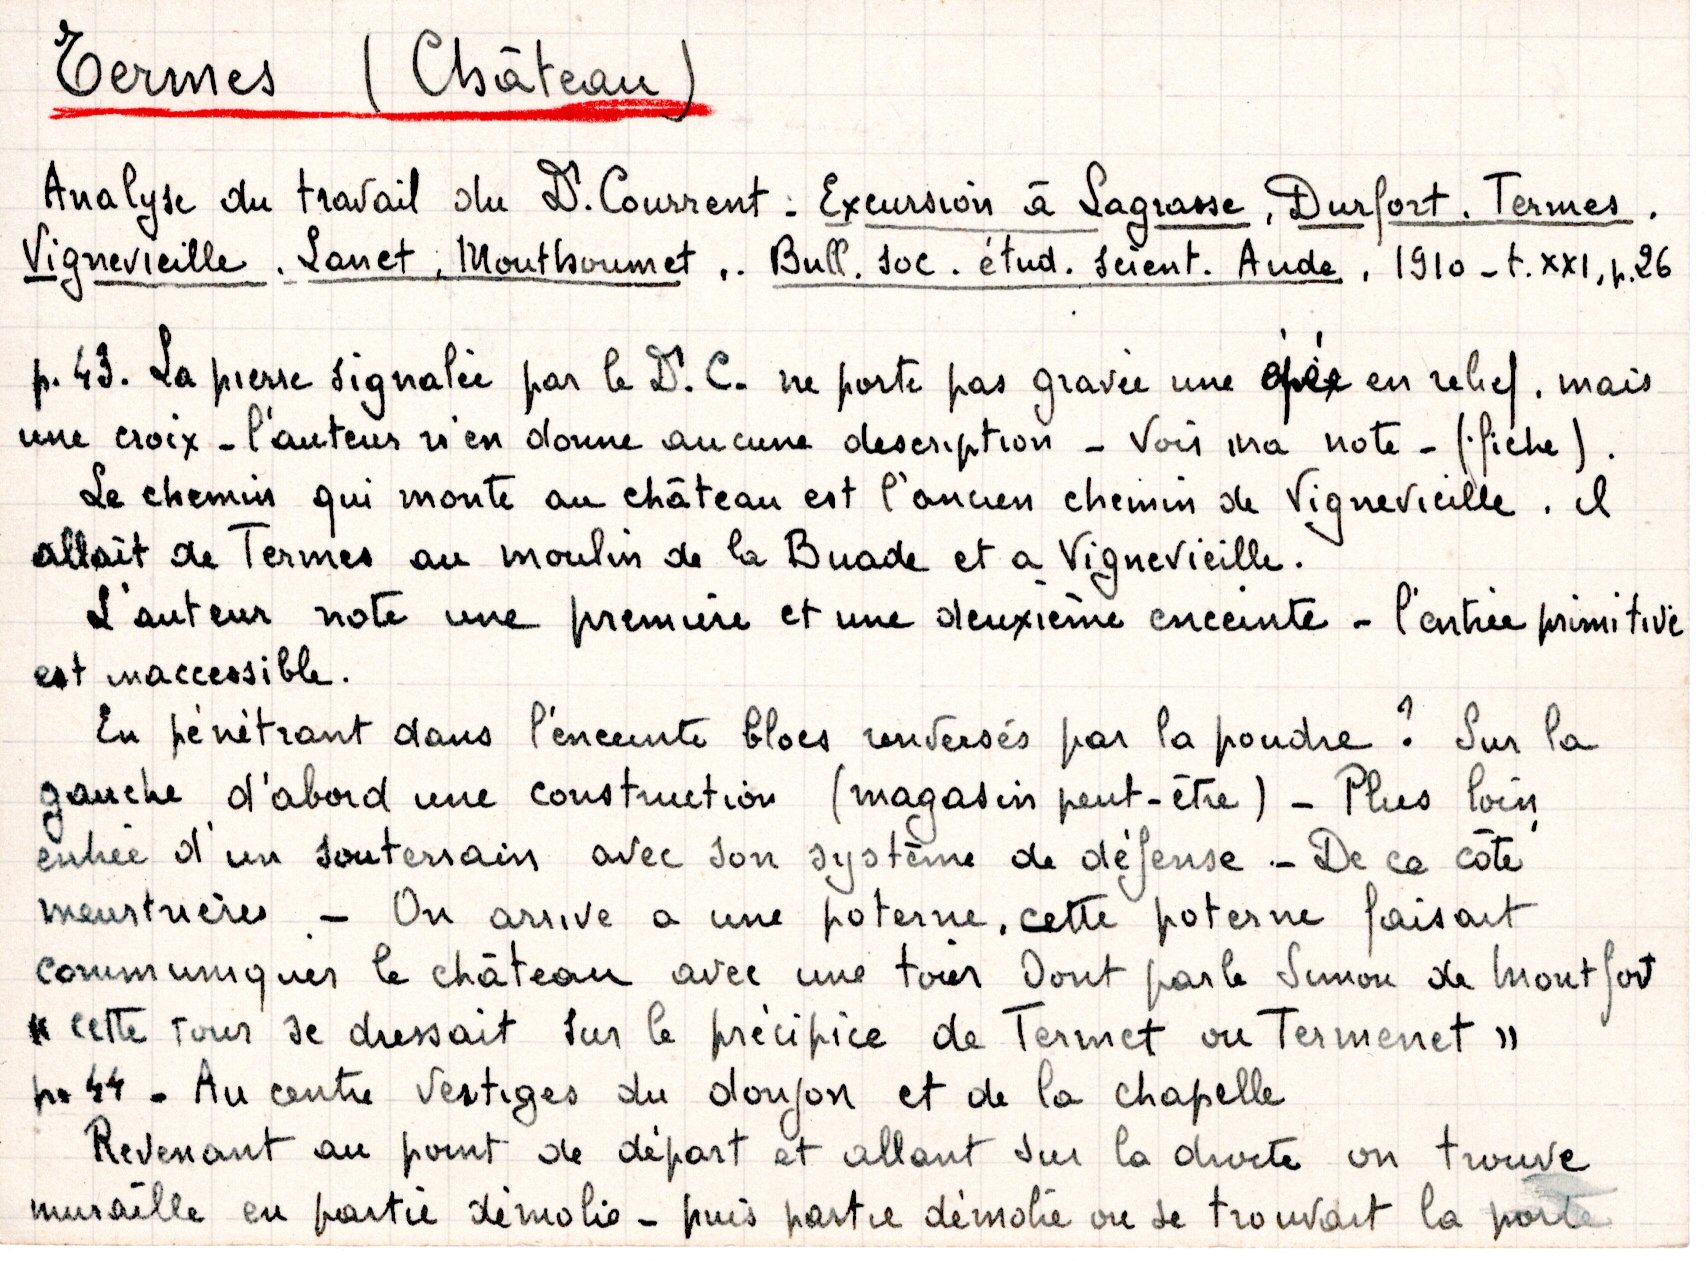 Termes (Château)
Analyse du travail du Dr. Courrent - Excursion à Lagrasse, Durfort, Termes.
Vignevieille, Lanet, Mouthoumet,. Bull. soc. étud. scient. Aude, 1910 - t. XXI, p. 26
p. 43. La pierre signalée par le Dr. C. ne porte pas gravée une épée en relief, mais
une croix - l'auteur n'en donne aucune description - Voir ma note - (fiche).
Le chemin qui monte au château est l'ancien chemin de Vignevieille. il
allait de Termes au moulin de la Buade et a Vignevieille.
L'auteur note une première et une deuxième enceinte - l'entrée primitive
est inaccessible.
En pénétrant dans l'enceinte blocs renversés par la poudre? Sur la
gauche d'abord une construction (magasin peut-être) - Plus loin
entrée d'un souterrain avec son système de défense - De ce côté
meurtrières - On arrive a une poterne, cette poterne faisait
communiquer le château avec une tour Dont parle Simon de Montfort
« cette tour se dressait sur le précipice de Termet ou Termenet »
p. 44 - Au centre vestiges du donjon et de la chapelle
Revenant au point de départ et allant sur la droite on trouve
muraille en partie démolie - puis partie démolie ou se trouvait la porte